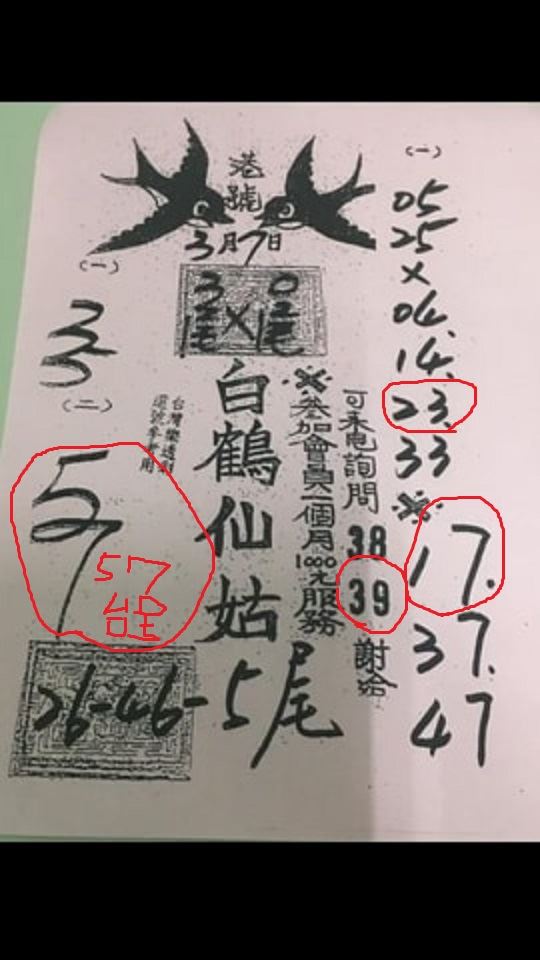 港號
3月7日
3尾×0尾
(一)
3
5
(二)
5
7
57
台灣樂透劇
選號參考用
白鶴仙姑
※
參加會員一個月1000元服務
可來電詢問
38
39
謝洽
(一)
05
25
×
04.
14.
23.
33
※
17.
37.
47
26-46-5尾